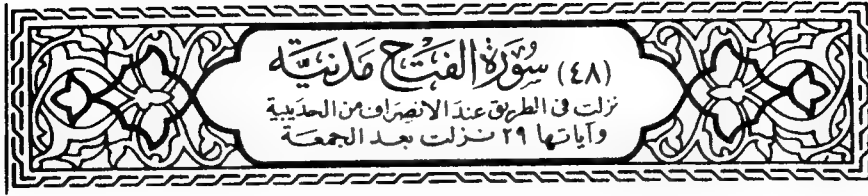 (٤٨) سُورَةُ الفَتْحِ مَدَنِيَّة
نزلت فى الطريق عند الانصراف من الحديبية
وآياتها ٢٩ نزلت بعد الجمعة